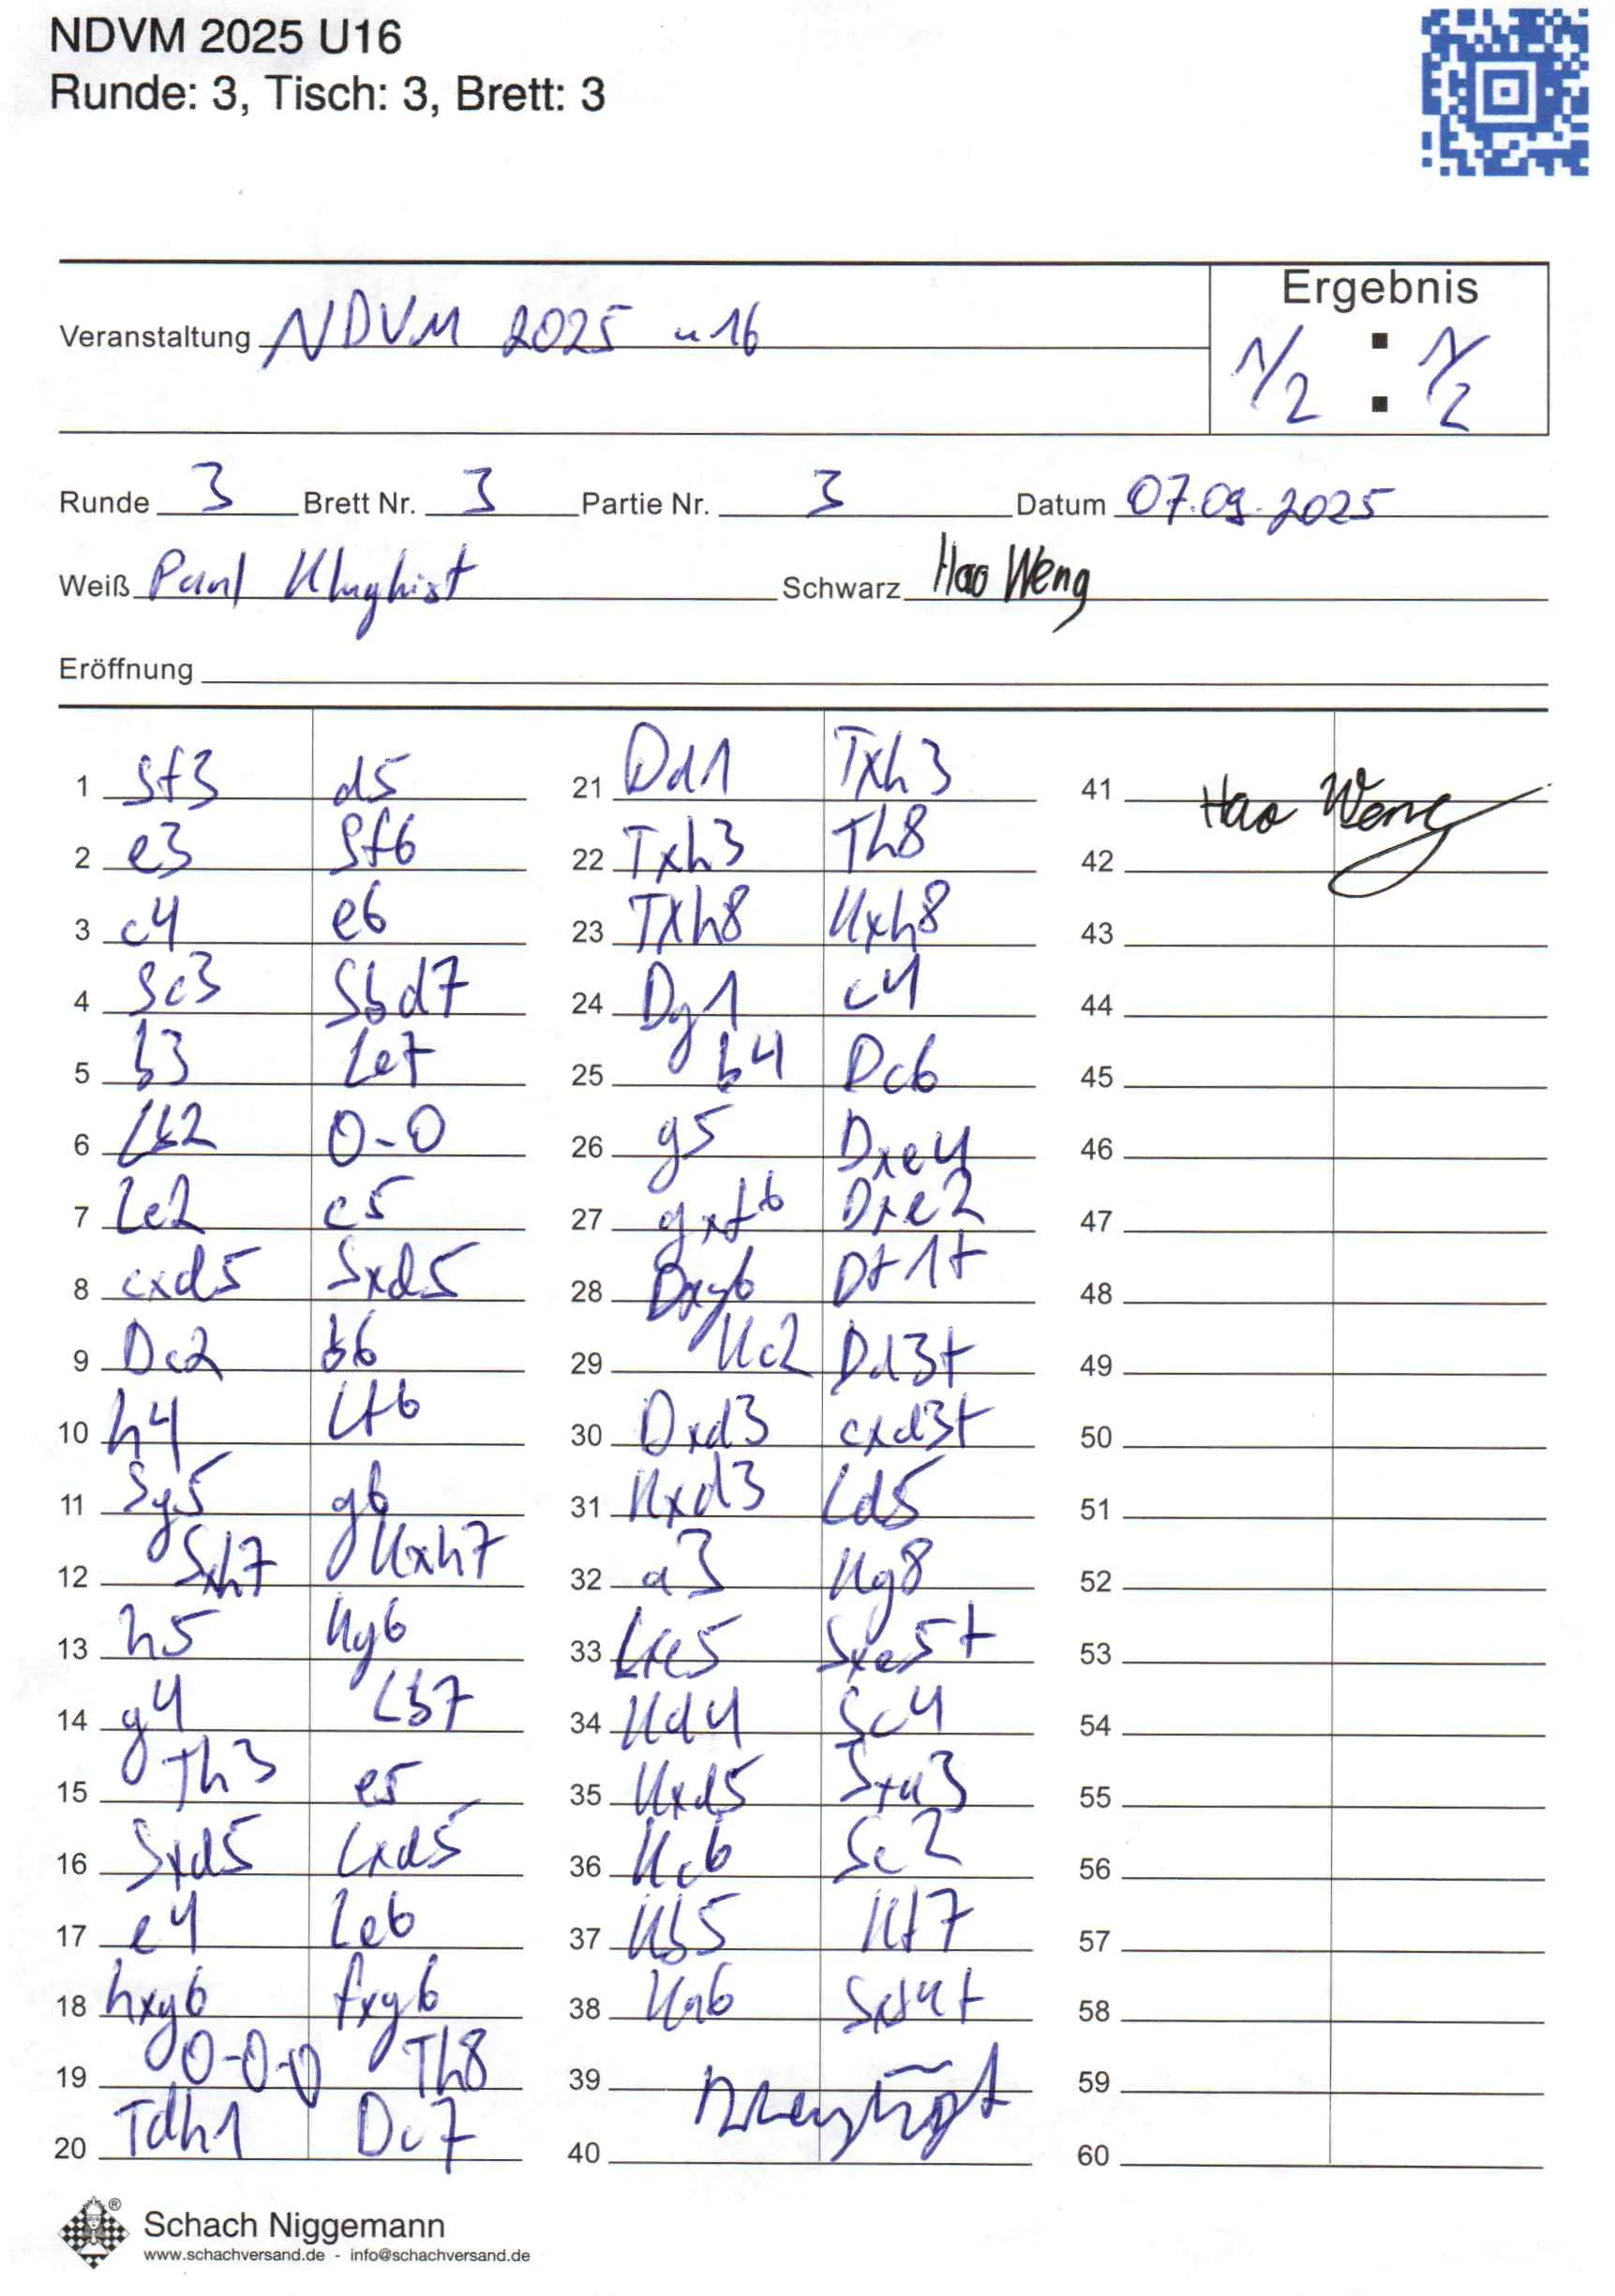 NDVM 2025 U16
Runde: 3, Tisch: 3, Brett: 3
Ergebnis
Veranstaltung NDVM 2025 u16
1/2 : 1/2
Runde 3 Brett Nr. 3 Partie Nr. 3 Datum 07.09.2025
Weiß Paul Schwarz Hao Weng
Eröffnung
1 Sf3 d5 21 Dd1 Txh3 41 Hao Weng
2 e3 Sf6 22 Txh3 Th8 42
3 c4 e6 23 Txh8 Kxh8 43
4 Sc3 Sbd7 24 Dg1 c4 44
5 b3 Le7 25 b4 Dc6 45
6 Lb2 0-0 26 g5 Dxe4 46
7 Le2 c5 27 gxf6 Dxe2 47
8 cxd5 Sxd5 28 Dxg6 Df1+ 48
9 Dc2 b6 29 Kc2 Dd3+ 49
10 h4 Lf6 30 Dxd3 cxd3+ 50
11 Sg5 g6 31 Kxd3 Ld5 51
12 Sxh7 Kxh7 32 a3 Kg8 52
13 h5 Kg6 33 Lxe5 Sxe5+ 53
14 g4 Lb7 34 Kd4 Sc4 54
15 Th3 e5 35 Kxd5 Sxa3 55
16 Sxd5 Lxd5 36 Kc6 Sc2 56
17 e4 Le6 37 Kb5 Kf7 57
18 hxg6 fxg6 38 Ka6 Sxb4+ 58
19 0-0-0 Th8 39 59
20 Tdh1 Dc7 40 60
Schach Niggemann
www.schachversand.de - info@schachversand.de